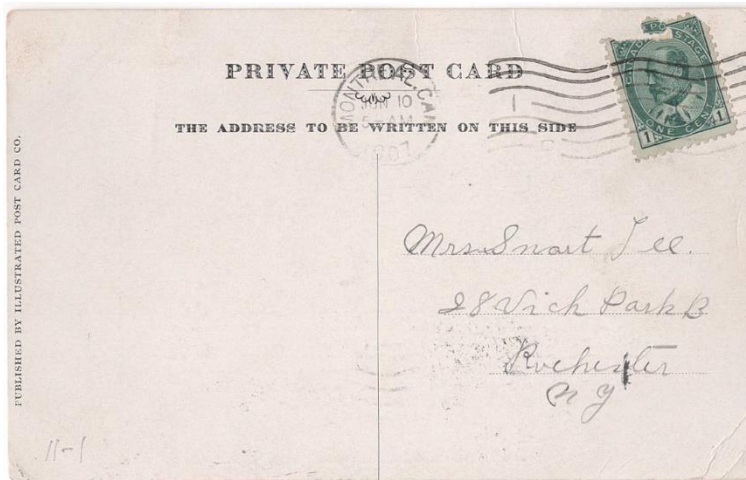 PRIVATE POST CARD
MONTREAL, CAN
JUN 10
AM
THE ADDRESS TO BE WRITTEN ON THIS SIDE
ONE CENT
1 1
PUBLISHED BY ILLUSTRATED POST CARD CO.
Mrs. Snart Lee.
28 Vick Park B
Rochester
N Y
11-1